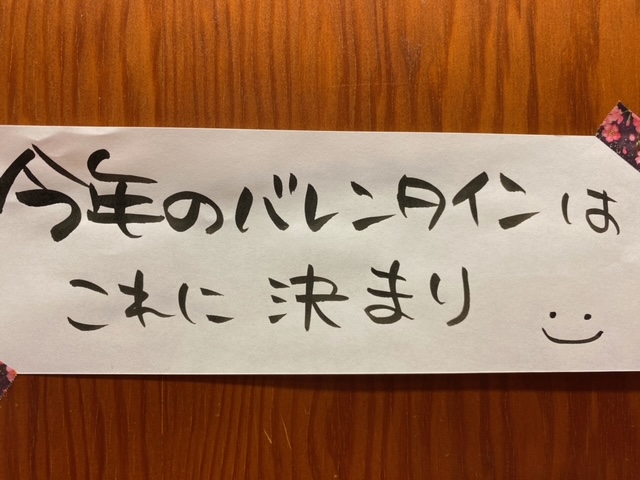 今年のバレンタインは
これに決まり